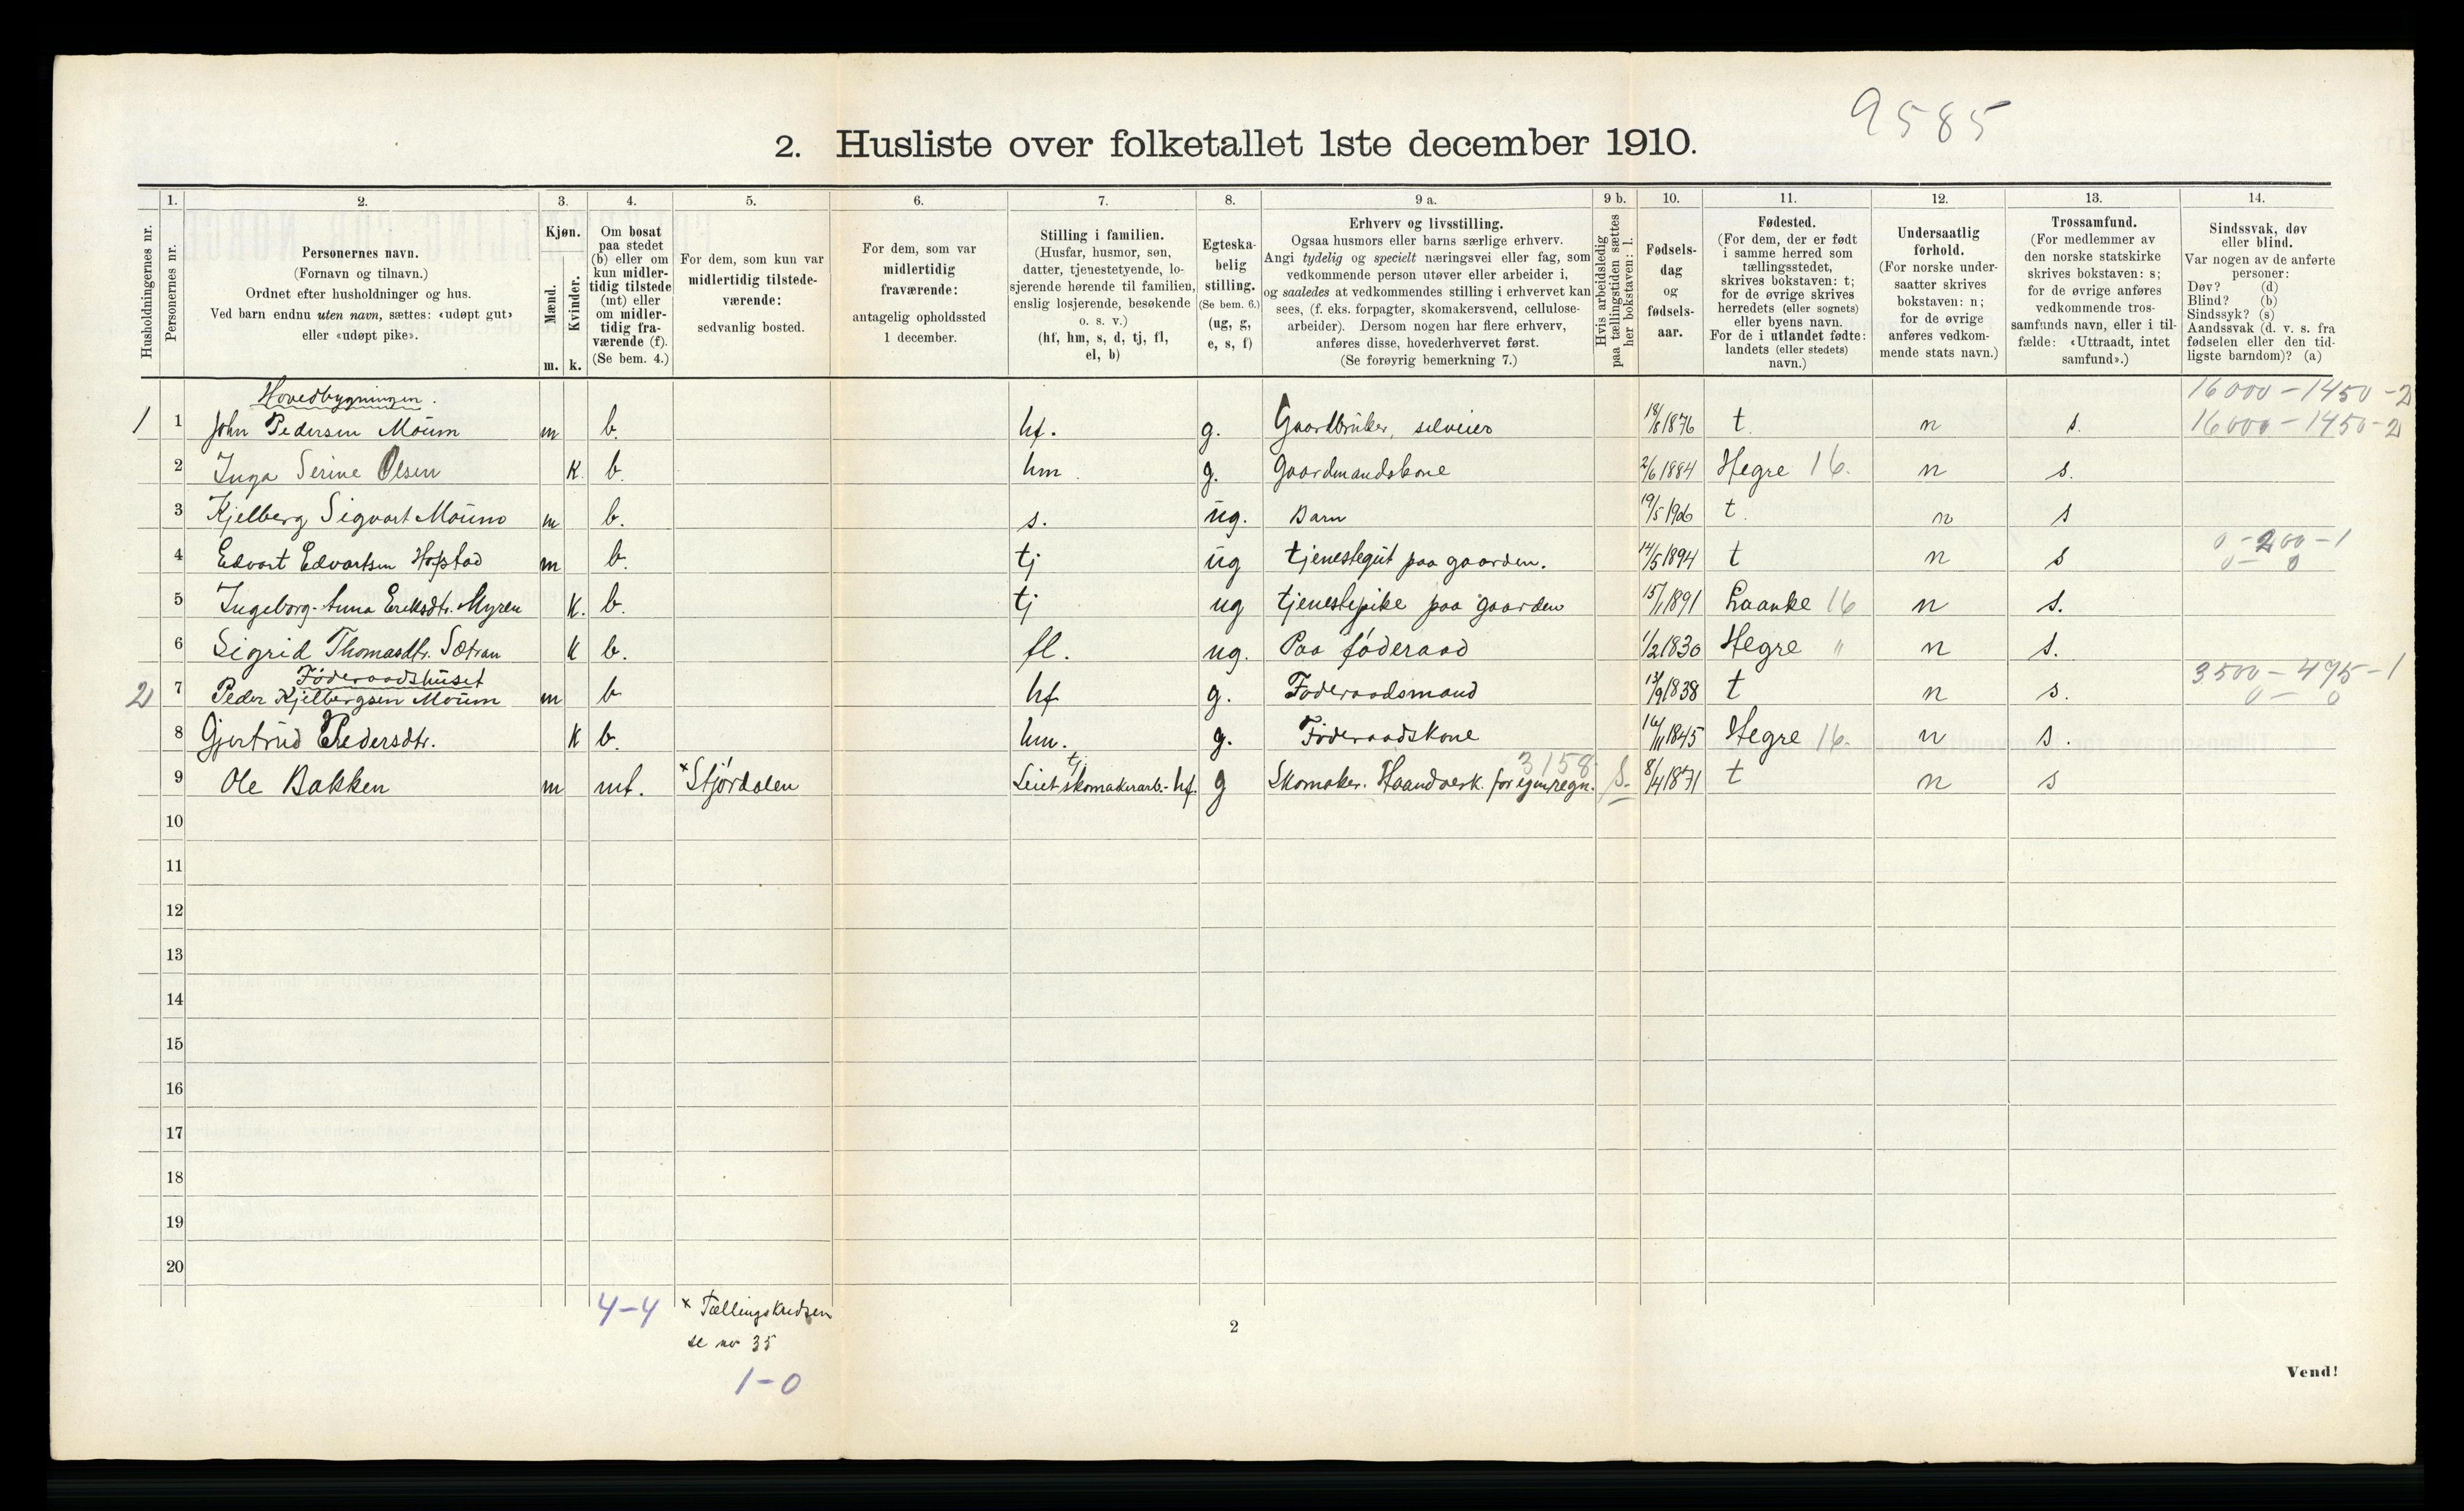 9585
2. Husliste over folketallet 1ste december 1910.
1. 2. 3. 4. 5. 6. 7. 8. 9 a. 9 b. 10. 11. 12. 13. 14.
Husholdningernes nr.
Personernes nr.
Personernes navn.
(Fornavn og tilnavn.)
Ordnet efter husholdninger og hus.
Ved barn endnu uten navn, sættes: «udøpt gut»
eller «udøpt pike».
Kjøn.
Mænd.
Kvinder.
m. k.
Om bosat
paa stedet
(b) eller om
kun midler-
tidig tilstede
(mt) eller
om midler-
tidig fra-
værende (f).
(Se bem. 4.)
For dem, som kun var
midlertidig tilstede-
værende:
sedvanlig bosted.
For dem, som var
midlertidig
fraværende:
antagelig opholdssted
1 december.
Stilling i familien.
(Husfar, husmor, søn,
datter, tjenestetyende, lo-
sjerende hørende til familien,
enslig losjerende, besøkende
o. s. v.)
(hf, hm, s, d, tj, fl,
el, b)
Egteska-
belig
stilling.
(Se bem. 6.)
(ug, g,
e, s, f)
Erhverv og livsstilling.
Ogsaa husmors eller barns særlige erhverv.
Angi tydelig og specielt næringsvei eller fag, som
vedkommende person utøver eller arbeider i,
og saaledes at vedkommendes stilling i erhvervet kan
sees, (f. eks. forpagter, skomakersvend, cellulose-
arbeider). Dersom nogen har flere erhverv,
anføres disse, hovederhvervet først.
(Se forøvrig bemerkning 7.)
Hvis arbeidsledig
paa tællingstiden sættes
her bokstaven: l.
Fødsels-
dag
og
fødsels-
aar.
Fødested.
(For dem, der er født
i samme herred som
tællingsstedet,
skrives bokstaven: t;
for de øvrige skrives
herredets (eller sognets)
eller byens navn.
For de i utlandet fødte:
landets (eller stedets)
navn.)
Undersaatlig
forhold.
(For norske under-
saatter skrives
bokstaven: n;
for de øvrige
anføres vedkom-
mende stats navn.)
Trossamfund.
(For medlemmer av
den norske statskirke
skrives bokstaven: s;
for de øvrige anføres
vedkommende tros-
samfunds navn, eller i til-
fælde: «Uttraadt, intet
samfund».)
Sindssvak, døv
eller blind.
Var nogen av de anførte
personer:
Døv? (d)
Blind? (b)
Sindssyk? (s)
Aandssvak (d. v. s. fra
fødselen eller den tid-
ligste barndom)? (a)
Hovedbygningen. 16000-1450-2
1 1 John Pedersen Moum m b. hf. g. Gaardbruker, selveier 18/8 1876 t. n s. 16000-1450-2
2 Inga Serine Olsen K. b. hm. g. Gaardmandskone 2/6 1884 Hegre 16. n s.
3 Kjelberg Sigvart Moum m b. s. ug. Barn 19/5 1906 t n s
4 Edvart Edvartsen Hofstad m b. tj ug tjenestegut paa gaarden. 14/5 1894 t n s 0-200-1
0- 0
5 Ingeborg-Anna Eriksdtr. Myren K. b. tj ug tjenestepike paa gaarden 15/1 1891 Laanke 16 n s.
6 Sigrid Thomasdtr. Sætran K b. fl. ug. Paa føderaad 1/2 1830 Hegre " n s.
Føderaadshuset 3500-495-1
2 7 Peder Kjelbergsen Moum m b hf g. Føderaadsmand 13/9 1838 t n s. 0- 0
8 Gjertrud Pedersdtr. K b. hm. g. Føderaadskone 16/11 1845 Hegre 16. n s.
tj 3158
9 Ole Bakken m mt. *Stjørdalen Leiet skomakerarb.- hf. g Skomaker. Haandverk. for egen regn. S. 8/4 1871 t n s
10
11
12
13
14
15
16
17
18
19
20
4-4
* Tællingskredsen
se no 35
1-0
2
Vend!